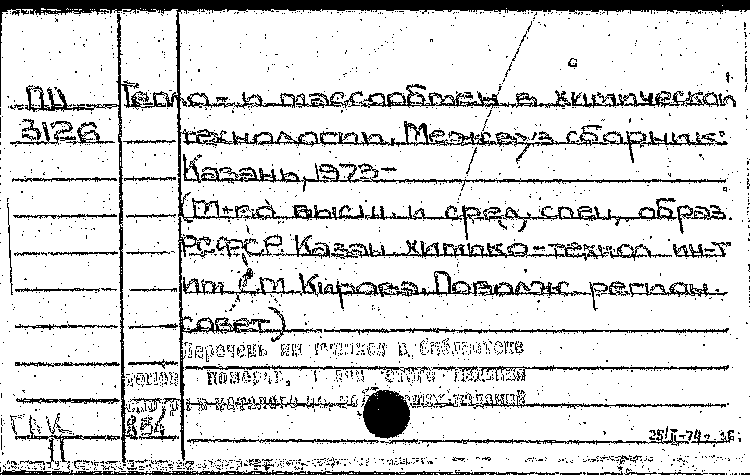 ПП Тепло- и массообмен в химической
3126 технологии. Межвуз сборник:
Казань, 1973-
(М-во высш. и сред. спец. образ.
РСФСР Казан химико-технол ин-т
им С.М Кирова. Поволж регион.
совет)
Перечень имеющихся в библиотеке
томов, номеров,
смотри в каталоге
ГПК 854
II 25/II-74г.